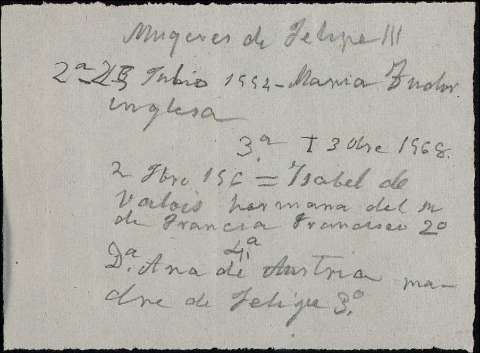 Mugeres de Felipe III
2ª 25 Julio 1554 - Maria Tudor
inglesa
3.ª † 3 Obre 1568.
2 Fbro 156 = Isabel de
Valois hermana del r
de Francia Francisco 2º
4ª
D.ª Ana de Austria ma-
dre de Felipe 3.º